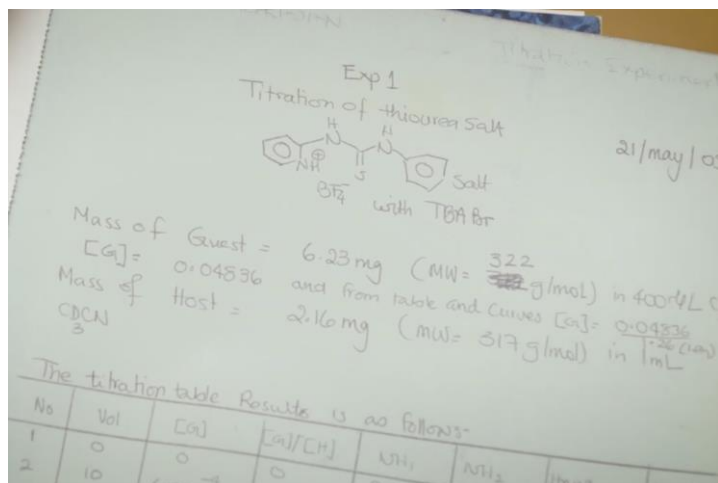 Exp 1
Titration of thiourea Salt
21/may/0
H H
N N
NH
⊕
S
BF4
Salt
with TBABr
Mass of Guest = 6.23 mg (MW= 322 g/mol) in 400 ML
[G]= 0.04836 and from table and Curves [G]= 0.04836
Mass of Host = 2.16 mg (MW= 317 g/mol) in 1 mL
CD3CN
The titration table Results is as follows:-
No Vol [G] [G]/[H] NH1 NH2
1 0 0 0
2 10